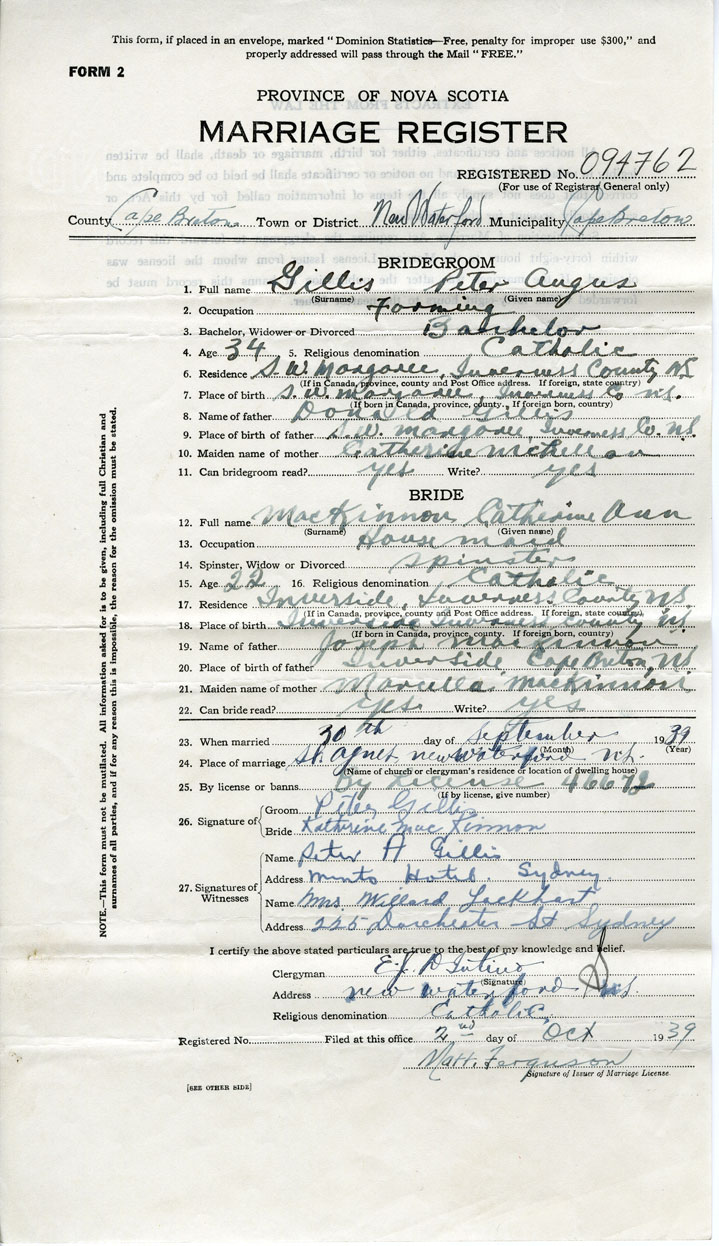 This form, if placed in an envelope, marked "Dominion Statistics—Free, penalty for improper use $300," and
properly addressed will pass through the Mail "FREE."
FORM 2
PROVINCE OF NOVA SCOTIA
MARRIAGE REGISTER
REGISTERED No. 094762
(For use of Registrar General only)
County Cape Breton Town or District New Waterford Municipality Cape Breton
BRIDEGROOM
1. Full name Gillis Peter Angus
(Surname) (Given name)
2. Occupation Farming
3. Bachelor, Widower or Divorced Bachelor
4. Age 34 5. Religious denomination Catholic
6. Residence S. W. Margaree, Inverness County NS
(If in Canada, province, county and Post Office address. If foreign, state country)
7. Place of birth S. W. Margaree, Inverness Co N.S.
(If born in Canada, province, county. If foreign born, country)
8. Name of father Donald Gillis
9. Place of birth of father S. W. Margaree, Inverness Co. N.S.
10. Maiden name of mother Catherine McLellan
11. Can bridegroom read? yes Write? yes
BRIDE
12. Full name MacKinnon Catherine Ann
(Surname) (Given name)
13. Occupation House maid
14. Spinster, Widow or Divorced spinster
15. Age 22 16. Religious denomination Catholic
17. Residence Inverside, Inverness County NS
(If in Canada, province, county and Post Office address. If foreign, state country)
18. Place of birth Inverside Inverness County NS
(If born in Canada, province, county. If foreign born, country)
19. Name of father Joseph MacKinnon
20. Place of birth of father Inverside Cape Breton, NS
21. Maiden name of mother Marcella MacKinnon
22. Can bride read? yes Write? yes
23. When married 30th day of September 1939
(Month) (Year)
24. Place of marriage St. Agnes, New Waterford N.S.
(Name of church or clergyman's residence or location of dwelling house)
25. By license or banns By License 46672
(If by license, give number)
26. Signature of Groom Peter Gillis
Bride Katherine MacKinnon
27. Signatures of Witnesses
Name Peter A Gillis
Address Minto Hotel Sydney
Name Mrs. Willard Lockhart
Address 225 Dorchester St Sydney
I certify the above stated particulars are true to the best of my knowledge and belief.
Clergyman E. J. D'Intino
(Signature)
Address New Waterford N.S.
Religious denomination Catholic
Registered No. Filed at this office 2nd day of Oct 1939
Matt. Ferguson
Signature of Issuer of Marriage License
[SEE OTHER SIDE]
NOTE.—This form must not be mutilated. All information asked for is to be given, including full Christian and
surnames of all parties, and if for any reason this is impossible, the reason for the omission must be stated.